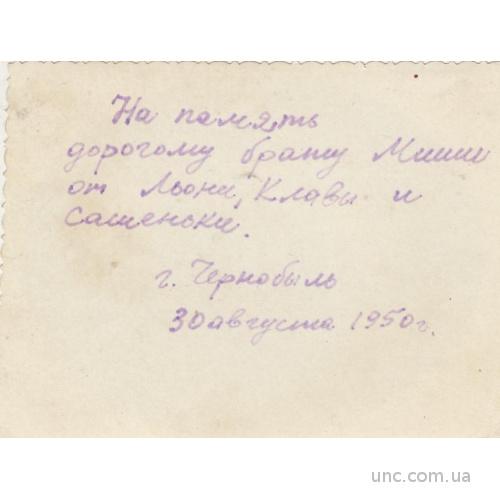 На память
дорогому брату Миши
от Льони, Клавы и
Сашеньки.
г. Чернобыль
30 августа 1950 г.
unc.com.ua